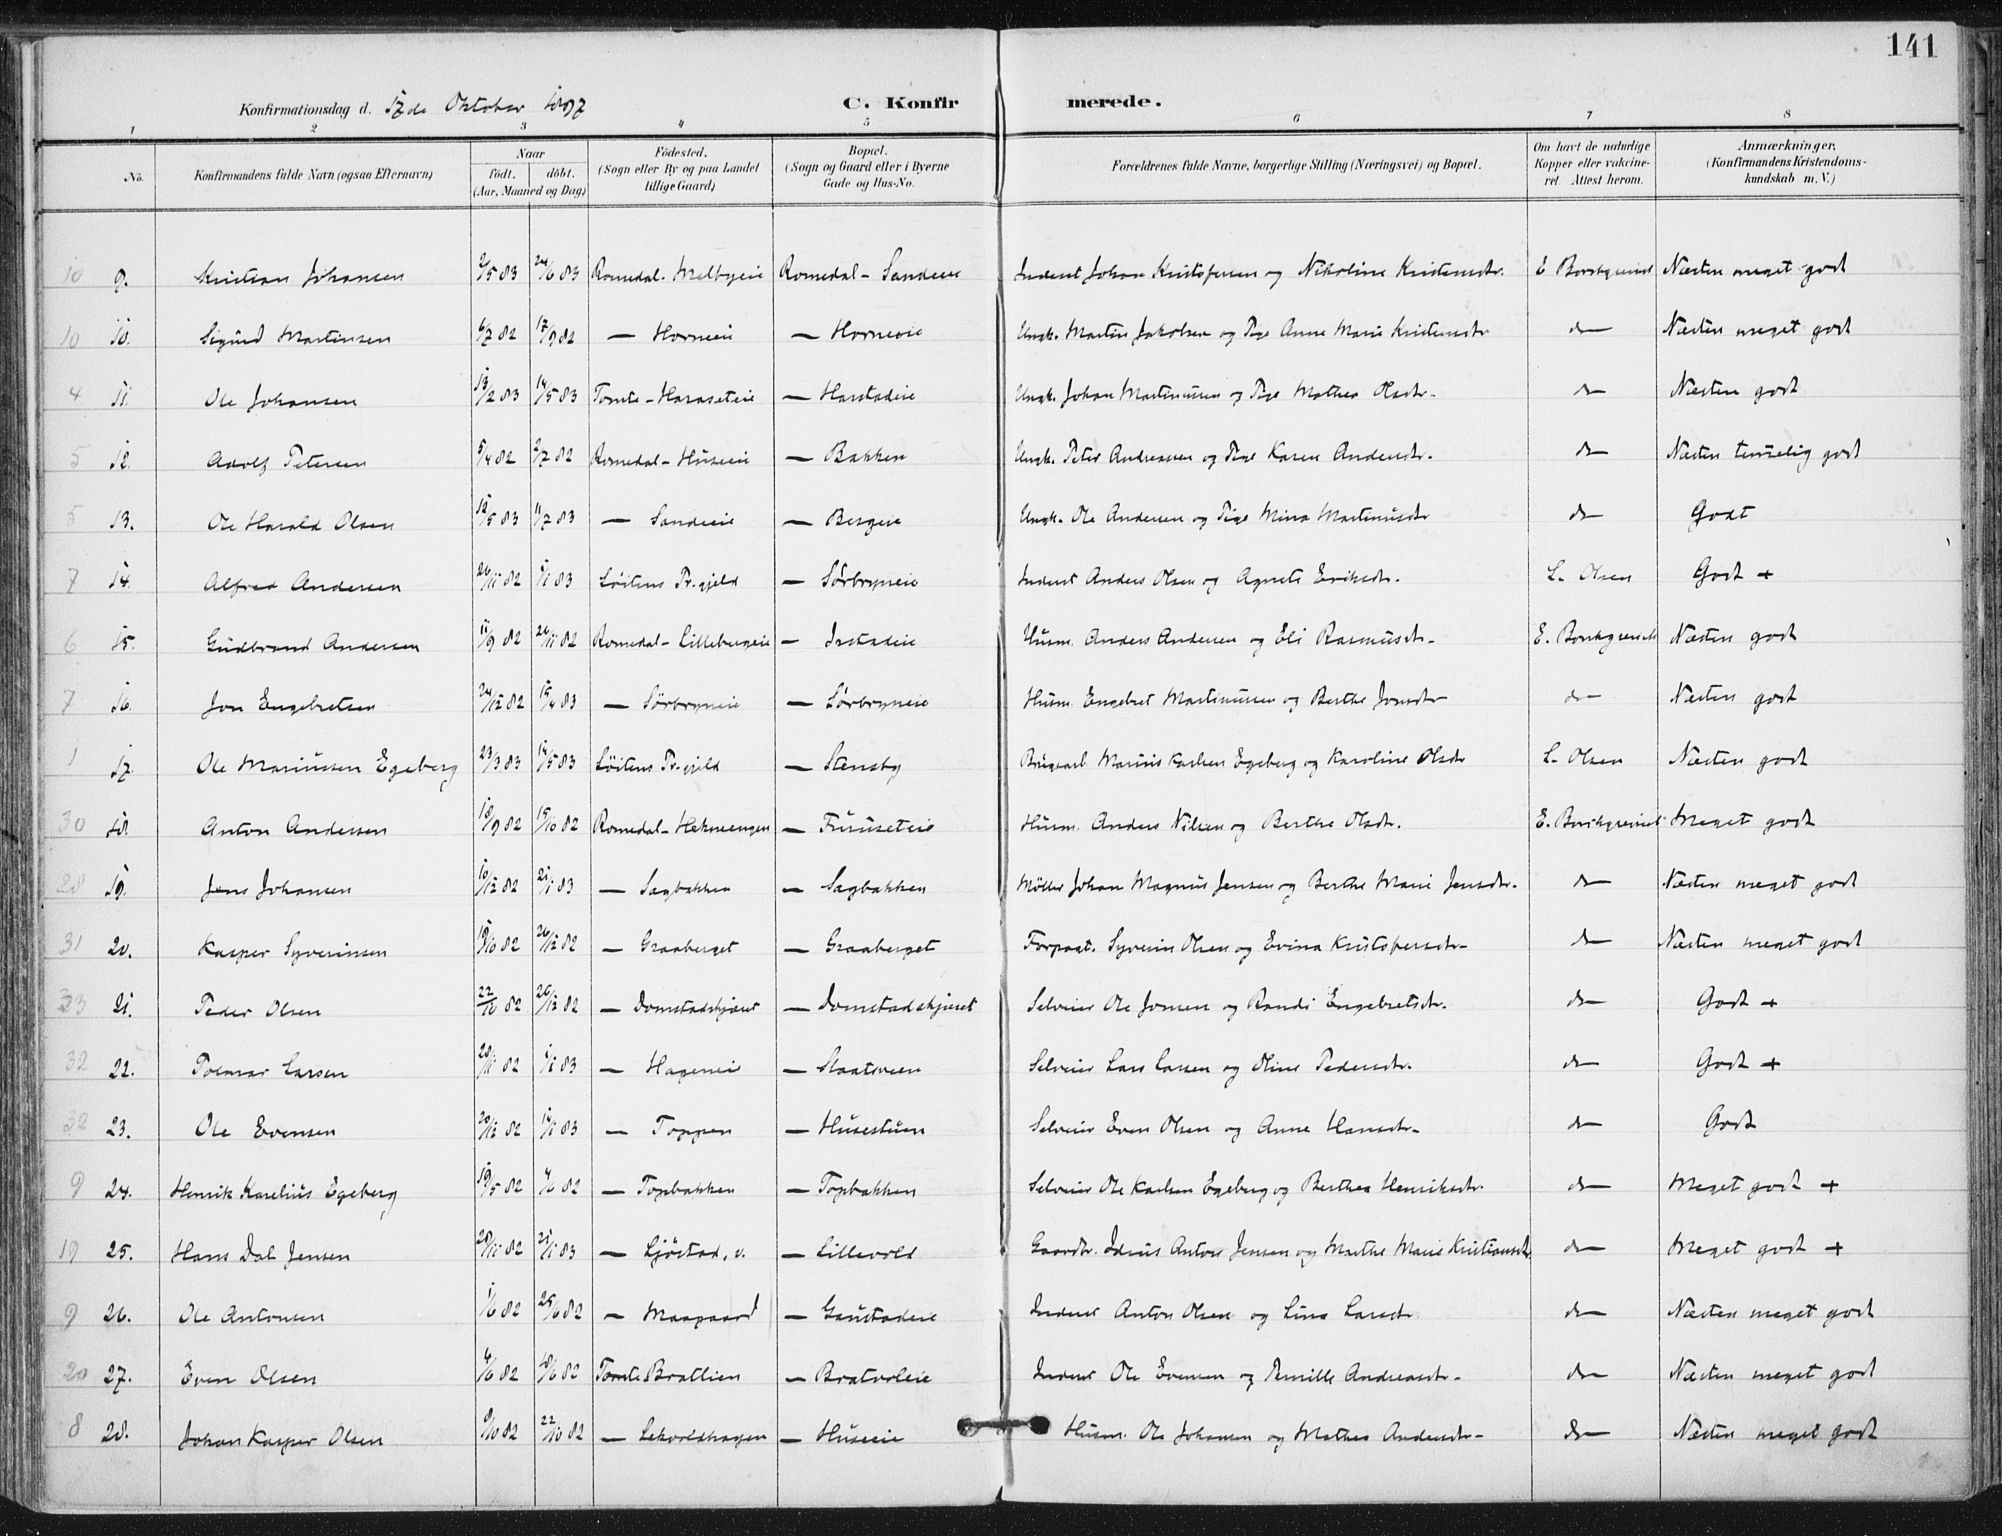 141
Konfirmationsdag d. 17de Oktober 1897 C. Konfirmerede.
1 2 3 4 5 6 7 8
No. Konfirmandens fulde Navn (ogsaa Efternavn) Naar født. døbt. (Aar, Maaned og Dag) Fødested. (Sogn eller By og paa Landet tillige Gaard) Bopæl. (Sogn og Gaard eller i Byerne Gade og Hus-No. Forældrenes fulde Navne, borgerlige Stilling (Næringsvei) og Bopæl. Om havt de naturlige Kopper eller vaccineret. Attest herom. Anmærkninger. (Konfirmandens Kristendomskundskab m. V.)
10 9. Kristian Johansen 2/5 83 24/6 83 Romedal - Melbyeie Romedal - Sandeie Inderst Johan Kristofersen og Nikoline Kristensdtr. E. Borchgrevink Næsten meget godt
10 10. Sigurd Martinsen 6/7 82 17/9 82 — Horneie — Horneie Ungk. Martin Jakobsen og Pige Anne Marie Kristensdtr do Næsten meget godt
4 11. Ole Johansen 13/2 83 14/5 83 Tomte - Haraseteie — Harstadeie Ungk. Johan Martinussen og Pige Mathea Olsdtr. do Næsten godt
5 12. Adolf Petersen 5/4 82 2/7 82 Romedal - Huseeie — Bakken Ungk. Peter Andreassen og Pige Karen Andersdtr. do Næsten temmelig godt
5 13. Ole Harald Olsen 12/5 83 11/7 83 — Sandeie — Bergeie Ungk. Ole Andersen og Pige Mina Martinusdtr do Godt
7 14. Alfred Andersen 26/11 82 1/1 83 Løitens Pr.gjeld — Sørbryneie Inderst Anders Olsen og Agnete Eriksdtr. L. Olsen Godt +
6 15. Gudbrand Andersen 11/9 82 26/11 82 Romedal - Lillebergeie — Instadeie Husm. Anders Andersen og Eli Rasmusdtr. E. Borchgrevink Næsten godt
7 16. Jon Engebretsen 24/12 82 15/4 83 — Sørbryneie — Sørbryneie Husm. Engebret Martinussen og Berthe Jonsdtr do Næsten godt
1 17. Ole Mariussen Egeberg 23/3 83 14/5 83 Løitens Pr.gjeld — Stensby Brugsarb. Marius Karlsen Egeberg og Karoline Olsdtr L. Olsen Næsten godt
30 18. Anton Andersen 18/9 82 15/10 82 Romedal - Hekneengen — Furuseteie Husm. Anders Nilsen og Berthe Olsdtr. E. Borchgrevink Meget godt
28 19. Jens Johansen 10/12 82 21/1 83 — Sagbakken — Sagbakken Møller Johan Magnus Jensen og Berthe Marie Jensdtr. do Næsten meget godt
31 20. Kasper Syverinsen 19/10 82 26/12 82 — Graaberget — Graaberget Forpagt. Syverin Olsen og Evina Kristofersdtr. do Næsten meget godt
33 21. Peder Olsen 22/10 82 26/12 82 — Domstadskjæret — Domstadskjæret Selveier Ole Jonsen og Randi Engebretsdtr. do Godt +
32 22. Tolmar Larsen 28/11 82 1/1 83 — Hageneie — Slaatsveen Selveier Lars Larsen og Oline Pedersdtr. do Godt +
32 23. Ole Evensen 20/12 82 14/1 83 — Toppen — Husestuen Selveier Even Olsen og Anne Hansdtr. do Godt
9 24. Henrik Karelius Egeberg 19/5 82 4/6 82 — Topbakken — Topbakken Selveier Ole Karlsen Egeberg og Berthea Henriksdtr. do Meget godt +
19 25. Hans Dal Jensen 28/11 82 21/1 83 — Ljøstad, v. — Lillevold Gaardbr. Idius Anton Jensen og Marthe Marie Kristiansdtr. do Meget godt +
9 26. Ole Antonsen 1/6 82 25/6 82 — Maagaard — Gaustadeie Inderst Anton Olsen og Lina Larsdtr. do Næsten meget godt
20 27. Even Olsen 4/6 82 18/6 82 Tomte Bratlien — Bratvoleie Inderst Ole Evensen og Pernille Andreasdtr. do Næsten meget godt
8 28. Johan Kasper Olsen 9/10 82 22/10 82 — Lekvoldhagen — Huseeie Husm. Ole Johansen og Mathea Andersdtr. do Næsten meget godt